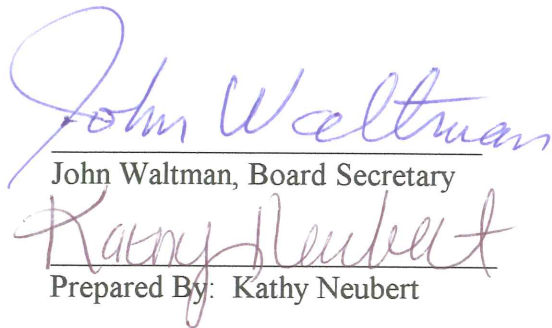 John Waltman
John Waltman, Board Secretary
Kathy Neubert
Prepared By: Kathy Neubert